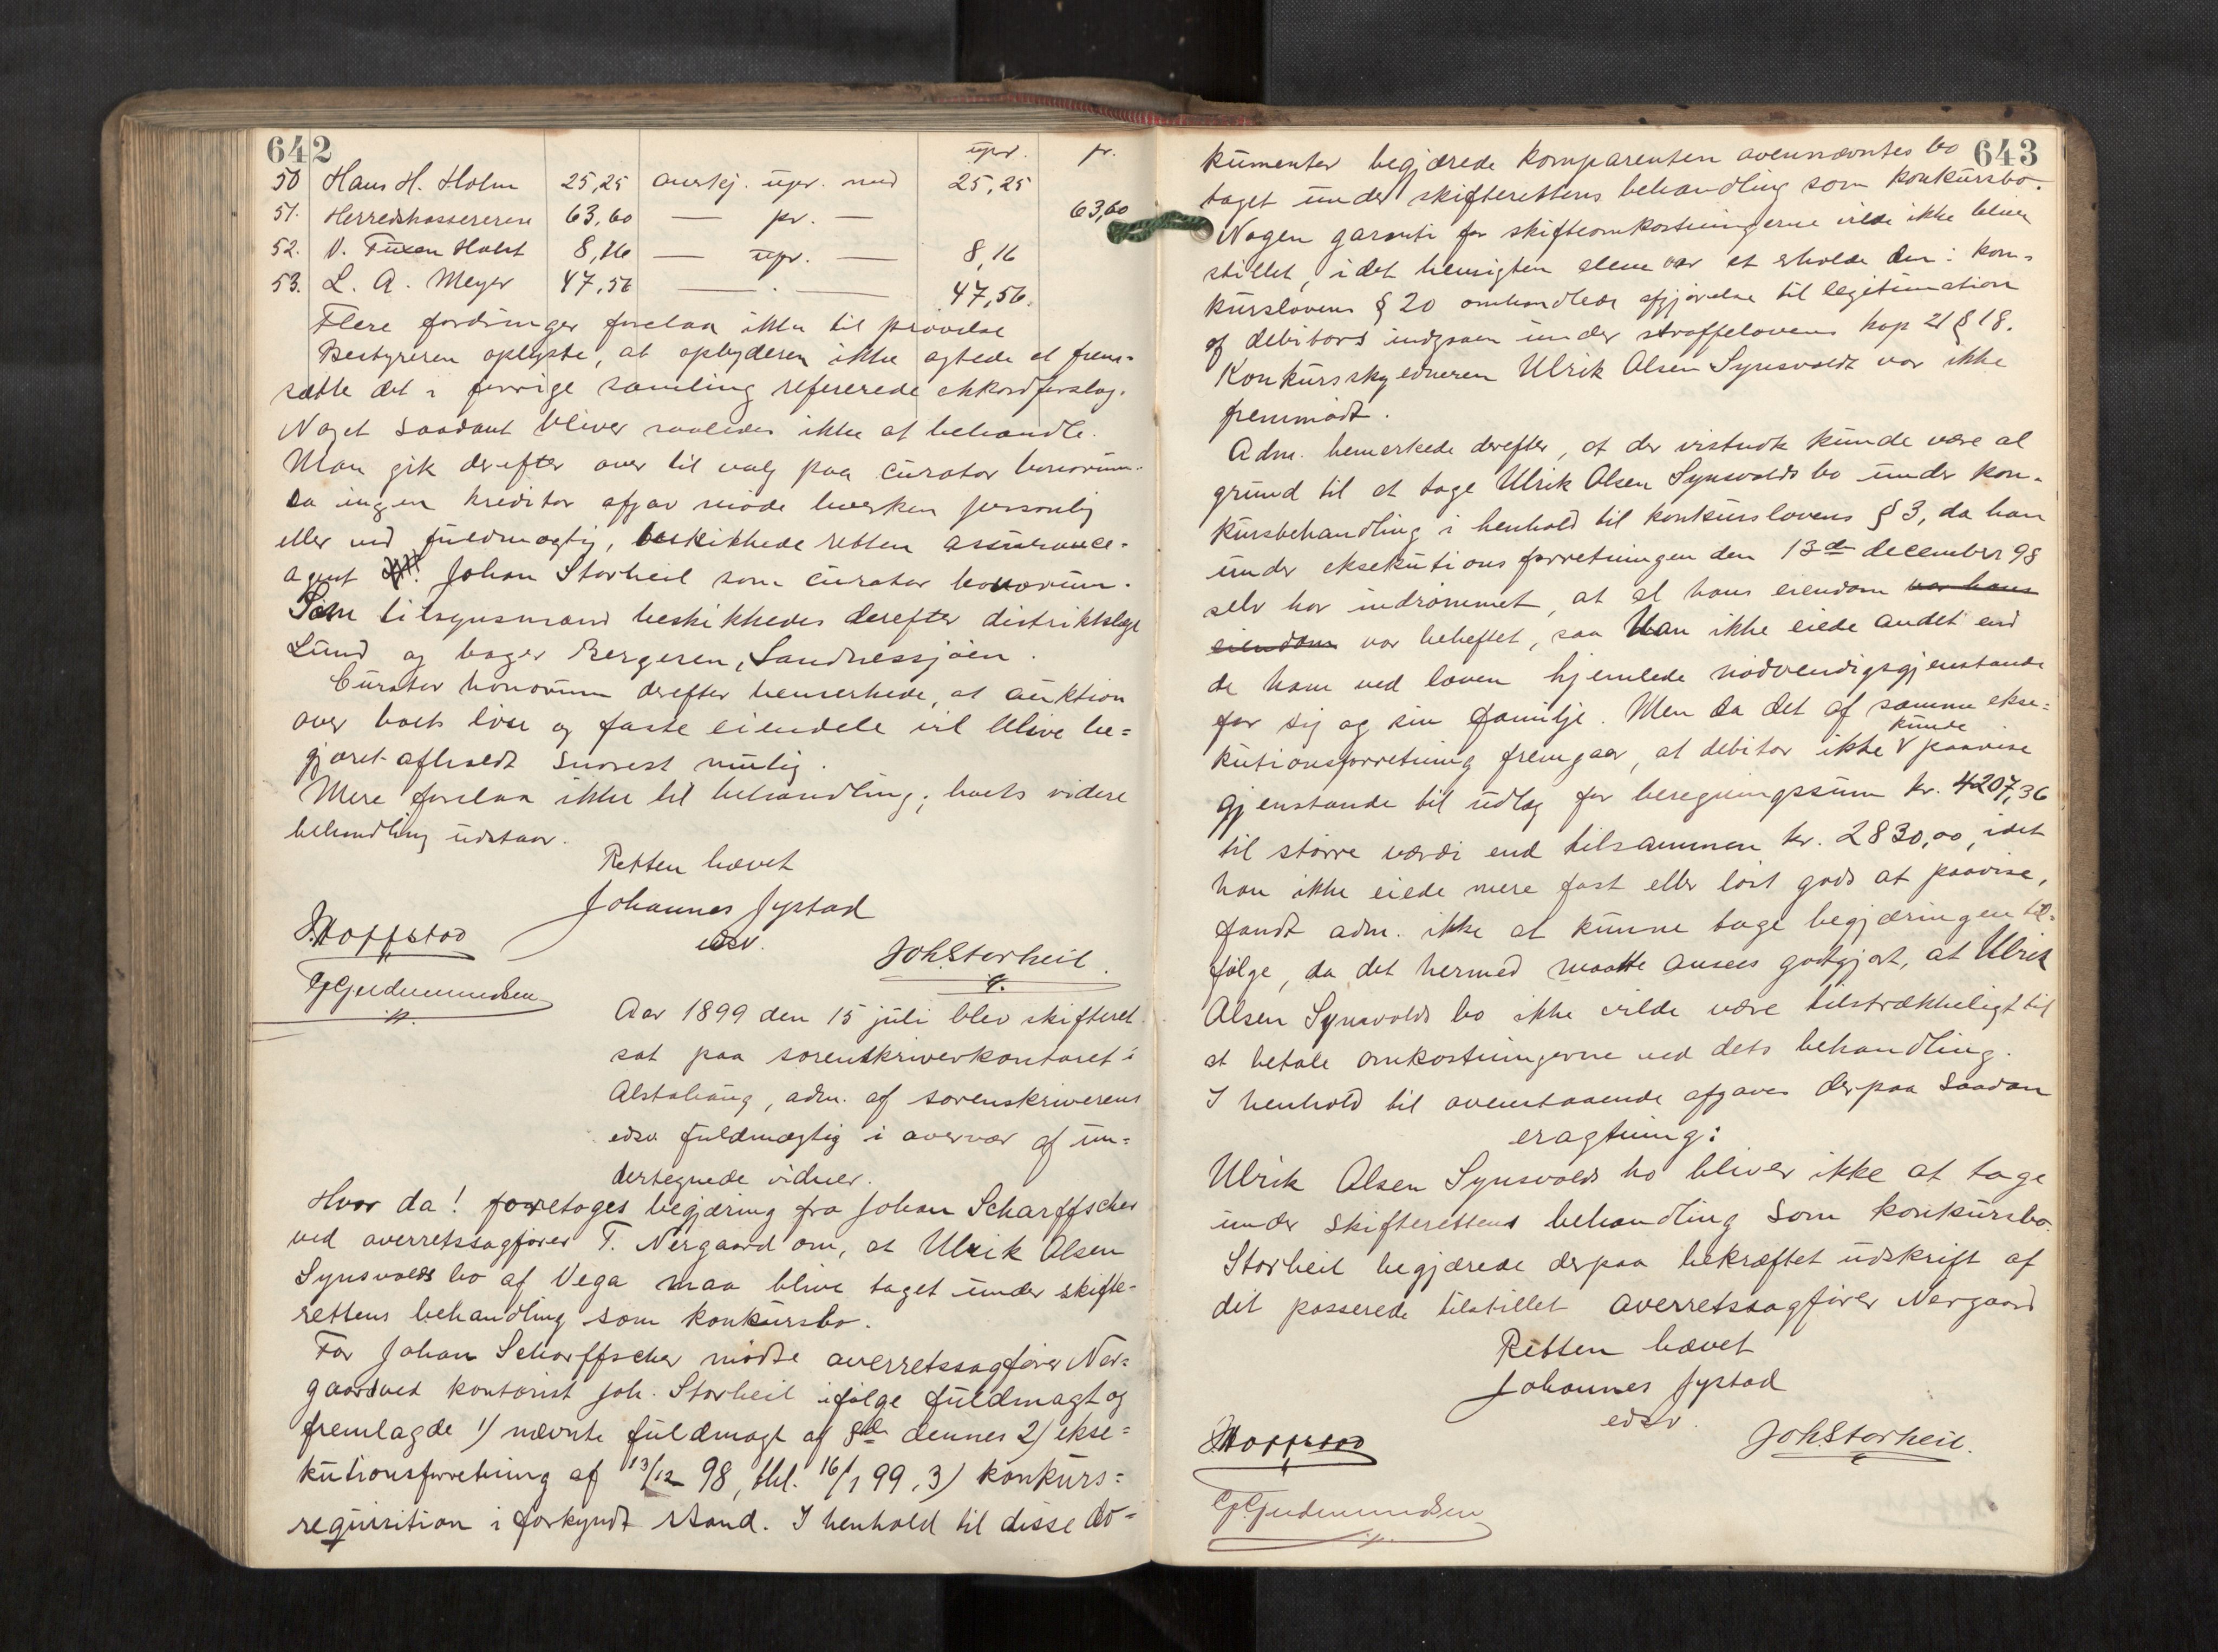 642
upr. pr.
50 Hans H. Holm 25,25 anerkj. upr. med 25,25
51. Herredskassereren 63,60 — pr. — 63,60
52. V. Fuxen Holst 8,16 — upr. — 8,16
53. L. A. Meyer 47,56 — . — 47,56.
Flere fordringer forelaa ikke til prøvelse
Bestyreren oplyste, at opbyderen ikke agtede at frem-
sætte det i forrige samling refererede akkordforslag.
Noget saadant bliver saaledes ikke at behandle.
Man gik derefter over til valg paa curator bonorum.
Da ingen kreditor afgav møde hverken personlig
eller ved fuldmægtig, beskikkede retten assurance-
agent Johan Storheil som curator bonorum.
Som tilsynsmænd beskikkedes derefter distriktslæge
Lund og bager Bergersen, Sandnessjøen.
Curator bonorum derefter bemerkede, at auktion
over boets løse og faste eiendele vil blive be=
gjæret afholdt snarest mulig.
Mere forelaa ikke til behandling; boets videre
behandling udstaar.
Retten hævet
Johannes Jystad
edsv.
J. Hoffstad
JohStorheil.
G. Gudmundsen
Aar 1899 den 15 juli blev skifteret
sat paa sorenskriverkontoret i
Alstahaug, adm. af sorenskriverens
edsv. fuldmægtig i overvær af un=
dertegnede vidner.
Hvor da! foretoges begjæring fra Johan Scharffscher
ved overretssagfører T. Nergaard om, at Ulrik Olsen
Synsvolds bo af Vega maa blive taget under skifte-
rettens behandling som konkursbo.
For Johan Scharffscher mødte overretssagfører Ner=
gaard ved kontorist Joh. Storheil ifølge fuldmagt og
fremlagde 1) nævnte fuldmagt af 8de dennes 2) ekse=
kutionsforretning af 13/12 98, thl. 16/1 99, 3) konkurs=
requisition i forkyndt stand. I henhold til disse do=
643
kumenter begjærede komparenten ovennævntes bo
taget under skifterettens behandling som konkursbo.
Nogen garanti for skifteomkostningerne vilde ikke blive
stillet, idet hensigten alene var at erholde den i kon=
kurslovens § 20 omhandlede afgjørelse til legitimation
af debitors indgaaen under straffelovens kap 21 § 18.
Konkursskyldneren Ulrik Olsen Synsvoldt var ikke
fremmødt.
Adm. bemerkede derefter, at der vistnok kunde være al
grund til at tage Ulrik Olsen Synsvolds bo under kon-
kursbehandling i henhold til konkurslovens § 3, da han
under eksekutionsforretningen den 13de december 98
selv har indrømmet, at al hans eiendom var hans
eiendom var beheftet, saa han ikke eiede andet end
de ham ved loven hjemlede nødvendigsgjenstande
for sig og sin familje. Men da det af samme ekse=
kunde
kutionsforretning fremgaar, at debitor ikke V paavise
gjenstande til udlæg for beregningssum kr. 4207,36
til større værdi end tilsammen kr. 2830,00, idet
han ikke eiede mere fast eller løst gods at paavise,
fandt adm. ikke at kunne tage begjæringen til-
følge, da det hermed maatte ansees godtgjort, at Ulrik
Olsen Synsvolds bo ikke vilde være tilstrækkeligt til
at betale omkostningerne ved dets behandling.
I henhold til ovenstaaende afgaves derpaa saadan
eragtning:
Ulrik Olsen Synsvolds bo bliver ikke at tage
under skifterettens behandling som konkursbo.
Storheil begjærede derpaa bekræftet udskrift af
det passerede tilstillet overretssagfører Nergaard
Retten hævet
Johannes Jystad
edsv.
J. Hoffstad
JohStorheil.
G. Gudmundsen